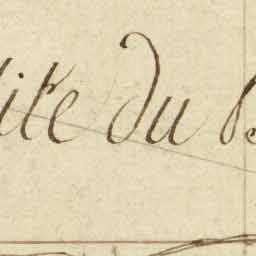 ite du